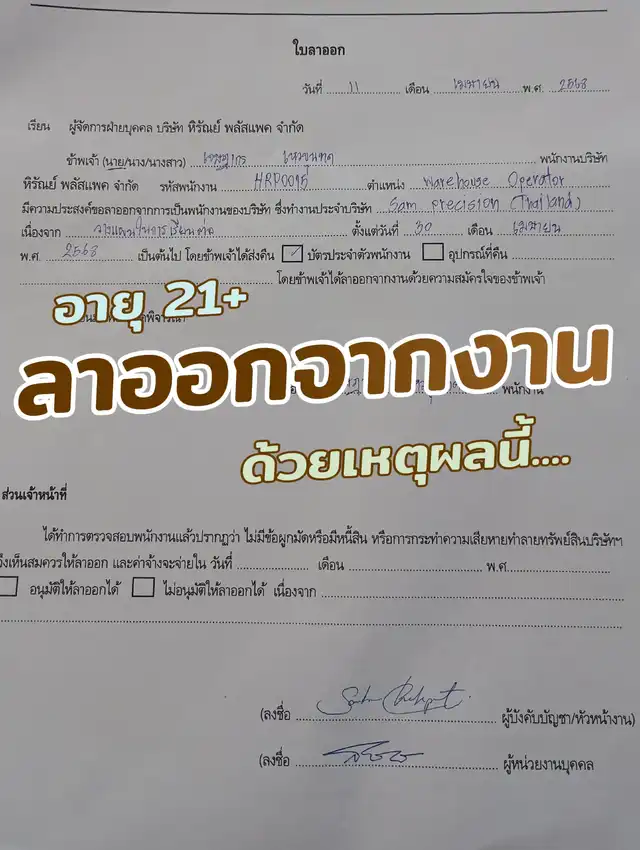 ใบลาออก
วันที่ 11 เดือน เมษายน พ.ศ. 2568
เรียน ผู้จัดการฝ่ายบุคคล บริษัท หิรัณย์ พลัสแพค จำกัด
ข้าพเจ้า (นาย/นาง/นางสาว) พนักงานบริษัท
หิรัณย์ พลัสแพค จำกัด รหัสพนักงาน HRP0095 ตำแหน่ง Warehouse Operator
มีความประสงค์ขอลาออกจากการเป็นพนักงานของบริษัท ซึ่งทำงานประจำบริษัท Sam Precision (Thailand)
เนื่องจาก วางแผนในการเรียนต่อ ตั้งแต่วันที่ 30 เดือน เมษายน
พ.ศ. 2568 เป็นต้นไป โดยข้าพเจ้าได้ส่งคืน บัตรประจำตัวพนักงาน อุปกรณ์ที่คืน
โดยข้าพเจ้าได้ลาออกจากงานด้วยความสมัครใจของข้าพเจ้า
อายุ 21+
ลาออกจากงาน
พนักงาน
ด้วยเหตุผลนี้....
ส่วนเจ้าหน้าที่
ได้ทำการตรวจสอบพนักงานแล้วปรากฏว่า ไม่มีข้อผูกมัดหรือมีหนี้สิน หรือการกระทำความเสียหายทำลายทรัพย์สินบริษัทฯ
จึงเห็นสมควรให้ลาออก และค่าจ้างจะจ่ายใน วันที่ เดือน พ.ศ.
อนุมัติให้ลาออกได้ ไม่อนุมัติให้ลาออกได้ เนื่องจาก
(ลงชื่อ ผู้บังคับบัญชา/หัวหน้างาน)
(ลงชื่อ ผู้หน่วยงานบุคคล